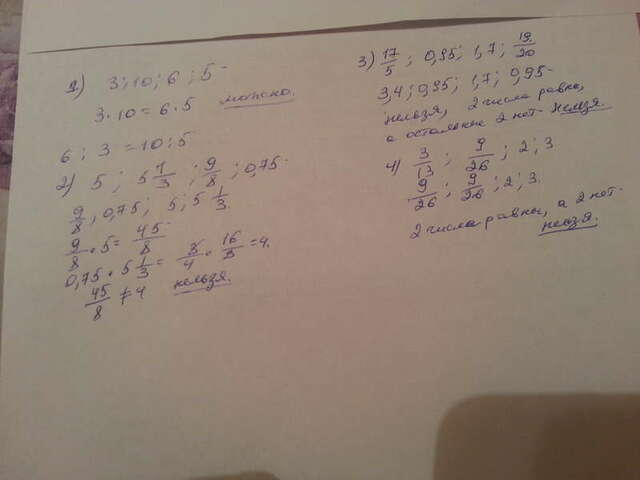 1) 3; 10; 6; 5
3·10 = 6·5 можно.
6 : 3 = 10 : 5
2) 5; 5 1/3; 9/8; 0,75
9/8; 0,75; 5; 5 1/3.
9/8 · 5 = 45/8
0,75 · 5 1/3 = 3/4 · 16/3 = 4.
45/8 ≠ 4 нельзя.
3) 17/5; 0,95; 1,7; 19/20
3,4; 0,95; 1,7; 0,95
нельзя, 2 числа равны,
а остальные 2 нет - нельзя.
4) 3/13; 9/26; 2; 3.
9/26; 9/26; 2; 3.
2 числа равны, а 2 нет -
нельзя.